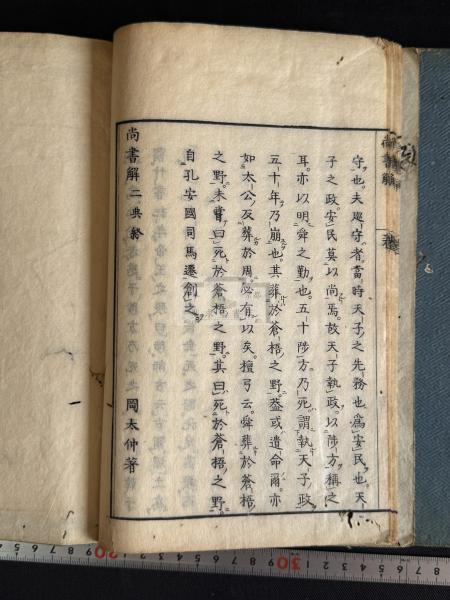 守也。夫巡守者當時天子之先務也。爲安民也。天
子之政。安民莫以尚焉。故天子執政。以陟方稱之
耳。亦以明舜之勤也。五十陟方乃死。謂執天子政
五十年乃崩也。其葬於蒼梧之野。蓋或遺命爾。亦
如太公反葬於周。必有以矣。檀弓云。舜葬於蒼梧
之野。未嘗曰死於蒼梧之野。其曰死於蒼梧之野。
自孔安國司馬遷創之。
尚書解二典終 岡太仲著
尚書解
20
30